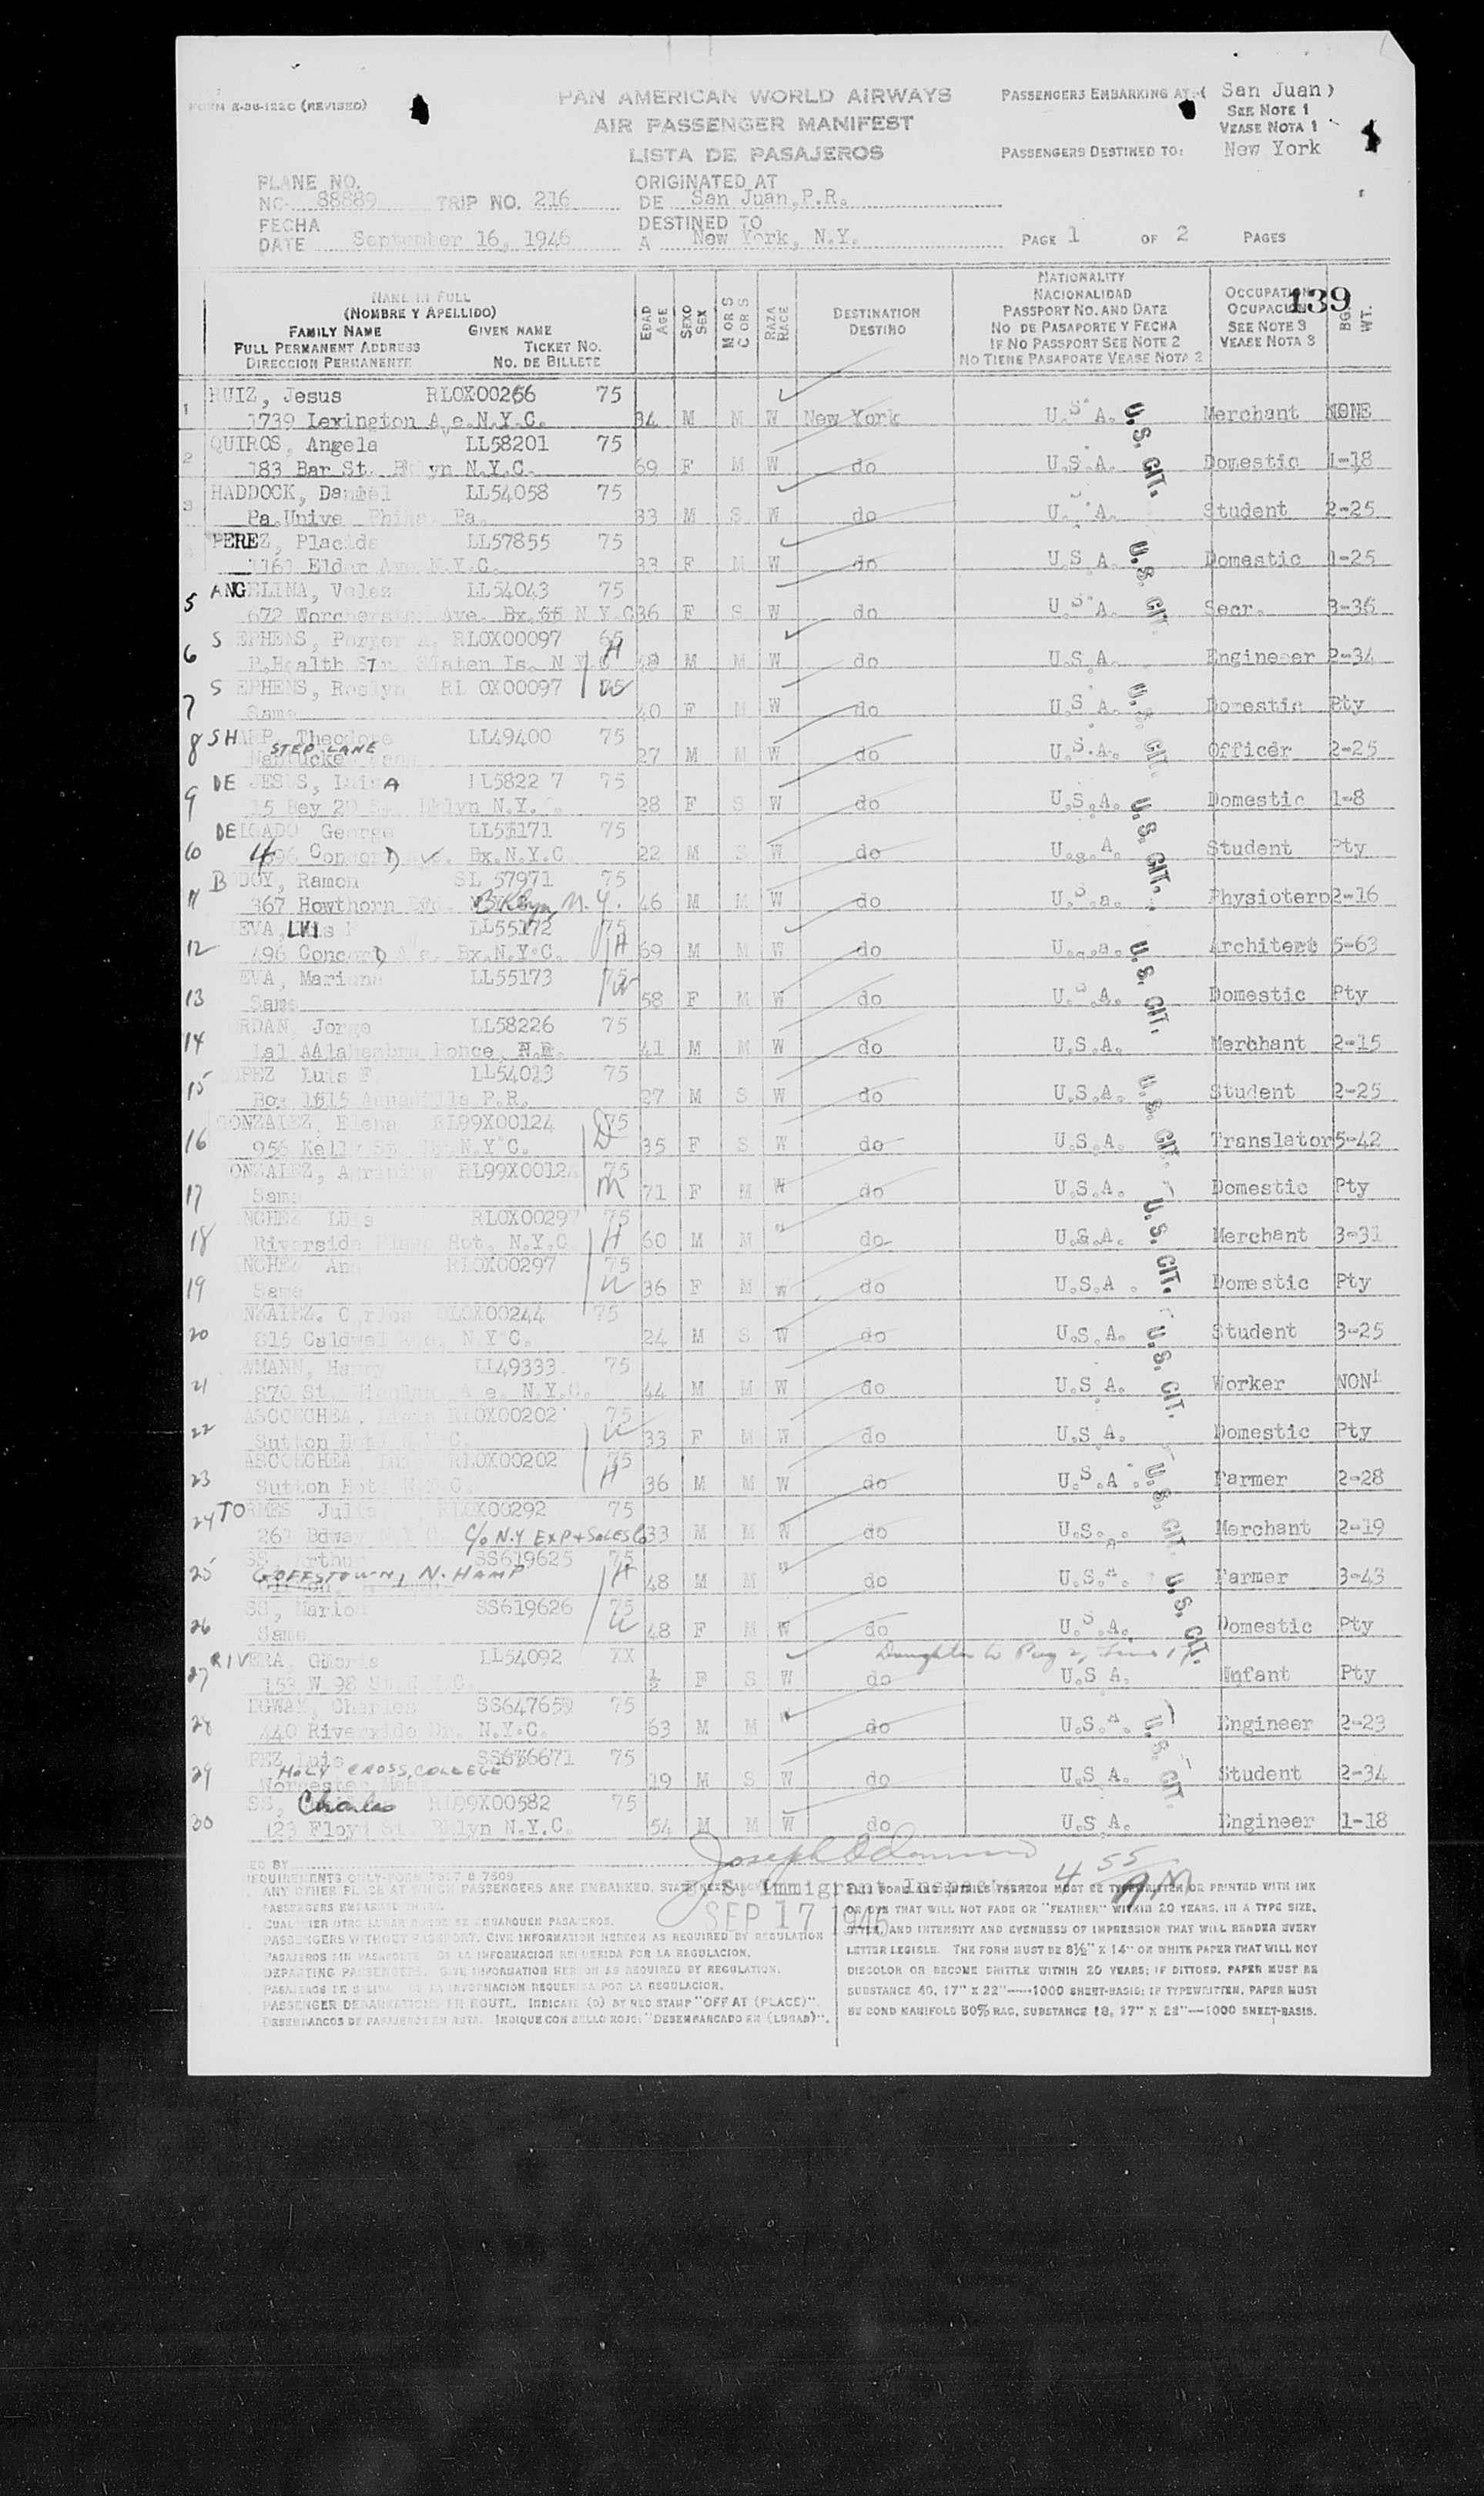 FORM R-36-122C (REVISED)
PAN AMERICAN WORLD AIRWAYS
AIR PASSENGER MANIFEST
LISTA DE PASAJEROS
PASSENGERS EMBARKING AT: ( San Juan )
SEE NOTE 1
VEASE NOTA 1
PASSENGERS DESTINED TO: New York
PLANE NO.
NC- 88889 TRIP NO. 216
ORIGINATED AT
DE San Juan, P.R.
FECHA
DATE September 16, 1946
DESTINED TO
A New York, N.Y.
PAGE 1 OF 2 PAGES
139
NAME IN FULL
(NOMBRE Y APELLIDO)
FAMILY NAME GIVEN NAME
FULL PERMANENT ADDRESS TICKET NO.
DIRECCION PERMANENTE NO. DE BILLETE
EDAD AGE
SEXO SEX
M OR S
C OR S
RAZA RACE
DESTINATION
DESTINO
NATIONALITY
NACIONALIDAD
PASSPORT NO. AND DATE
NO DE PASAPORTE Y FECHA
IF NO PASSPORT SEE NOTE 2
NO TIENE PASAPORTE VEASE NOTA 2
OCCUPATION
OCUPACION
SEE NOTE 3
VEASE NOTA 3
BG. WT.
1 RUIZ, Jesus RLOX00266 75
1739 Lexington Ave. N.Y.C. 34 M M W New York U.S.A. Merchant NONE
2 QUIROS, Angela LL58201 75
183 Bar St. Bklyn N.Y.C. 69 F M W do U.S.A. Domestic 1-18
3 HADDOCK, Daniel LL54058 75
Pa. Unive. Phila. Pa. 33 M S W do U.S.A. Student 2-25
PEREZ, Placida LL57855 75
1161 Elder Ave. N.Y.C. 33 F M W do U.S.A. Domestic 1-25
5 ANGELINA, Velez LL54043 75
672 Ave. Bx. N.Y.C 36 F S W do U.S.A. Secr. 3-36
6 STEPHENS, RLOX00097 65 H
P. Health Staten Is. N.Y.C 49 M M W do U.S.A. Engineer 2-34
7 STEPHENS, Roslyn RLOX00097 75 W
Same 40 F M W do U.S.A. Domestic Pty
8 SHARP, Theodore LL49400 75
STEP LANE
Nantucket 27 M M W do U.S.A. Officer 2-25
9 DE JESUS, Luisa LL58227 75
Bklyn N.Y. 28 F S W do U.S.A. Domestic 1-8
10 DELGADO George LL53171 75
496 Concord Bx. N.Y.C 22 M S W do U.S.A. Student Pty
11 BODOY, Ramon SL 57971 75
367 Howthorn Bklyn, N.Y. 46 M M W do U.S.a. Physioterp 2-16
12 EVA, Luis LL55172 75 H
496 Concord Ave. Bx. N.Y.C. 69 M M W do U.S.a. Architect 5-63
13 EVA, Mariana LL55173 75 W
Same 58 F M W do U.S.A. Domestic Pty
14 RDAN, Jorge LL58226 75
Ponce, 41 M M W do U.S.A. Merchant 2-15
15 LOPEZ Luis F. LL54013 75
Box 1615 Aguadilla P.R. 27 M S W do U.S.A. Student 2-25
16 GONZALEZ, Elena RL99X00124 75 D
956 Kelly St. N.Y.C. 35 F S W do U.S.A. Translator 5-42
17 GONZALEZ, Agripina RL99X00124 75 M
Same 71 F M W do U.S.A. Domestic Pty
18 NCHEZ Luis RLOX00297 75 H
Riverside Plaza Hot. N.Y.C 60 M M W do U.S.A. Merchant 3-31
19 NCHEZ Ana RLOX00297 75 W
Same 36 F M W do U.S.A. Domestic Pty
20 NZALEZ. Carlos RLOX00244 75
815 Caldwel N.Y.C. 24 M S W do U.S.A. Student 3-25
21 WMANN, Harry LL49333 75
870 St. Nicholas Ave. N.Y.C. 44 M M W do U.S.A. Worker NONE
22 ASCOECHEA, RLOX00202 75 W
Sutton Hot. N.Y.C. 33 F M W do U.S.A. Domestic Pty
23 ASCOECHEA RLOX00202 75 H
Sutton Hot. N.Y.C. 36 M M W do U.S.A. Farmer 2-28
24 TORRES Julio RLOX00292 75
261 Bdway N.Y.C. C/o N.Y EXP + SALES Co 33 M M W do U.S.A. Merchant 2-19
25 SS, Arthur SS619625 75 H
GOFFSTOWN, N. HAMP 48 M M W do U.S.A. Farmer 3-43
26 SS, Marion SS619626 75 W
Same 48 F M W do U.S.A. Domestic Pty
Daughter to Pag 2, Line 1
27 RIVERA, LL54092 XX
153 W 98 N.Y.C. ½ F S W do U.S.A. Infant Pty
28 DGWAY, Charles SS647659 75
440 Riverside Dr. N.Y.C. 63 M M W do U.S.A. Engineer 2-23
29 PEZ Luis SS636671 75
HOLY CROSS, COLLEGE
Worcester Mass 19 M S W do U.S.A. Student 2-34
30 SS, Charles RL99X00582 75
123 Floyd St. Bklyn N.Y.C. 54 M M W do U.S.A. Engineer 1-18
U.S. CIT.
U.S. CIT.
U.S. CIT.
U.S. CIT.
U.S. CIT.
U.S. CIT.
U.S. CIT.
U.S. CIT.
U.S. CIT.
U.S. CIT.
U.S. CIT.
U.S. Immigrant Inspector
4 55 AM
SEP 17 1946
ANY OTHER PLACE AT WHICH PASSENGERS ARE EMBARKED, STATE NEXT ABOVE
PASSENGERS EMBARKED THERE.
CUALQUIER OTRO LUGAR DONDE SE EMBARQUEN PASAJEROS.
PASSENGERS WITHOUT PASSPORT. GIVE INFORMATION HEREON AS REQUIRED BY REGULATION
PASAJEROS SIN PASAPORTE. DE LA INFORMACION REQUERIDA POR LA REGULACION.
DEPARTING PASSENGERS. GIVE INFORMATION HEREON AS REQUIRED BY REGULATION.
PASAJEROS DE SALIDA. DE LA INFORMACION REQUERIDA POR LA REGULACION.
PASSENGER DEBARKATIONS EN ROUTE. INDICATE (D) BY RED STAMP "OFF AT (PLACE)".
DESEMBARCOS DE PASAJEROS EN RUTA. INDIQUE CON SELLO ROJO: "DESEMBARCADO EN (LUGAR)".
THIS FORM AND ENTRIES THEREON MUST BE TYPEWRITTEN OR PRINTED WITH INK
OR DYE THAT WILL NOT FADE OR "FEATHER" WITHIN 20 YEARS, IN A TYPE SIZE,
STYLE, AND INTENSITY AND EVENNESS OF IMPRESSION THAT WILL RENDER EVERY
LETTER LEGIBLE. THE FORM MUST BE 8½" X 14" OR WHITE PAPER THAT WILL NOT
DISCOLOR OR BECOME BRITTLE WITHIN 20 YEARS; IF DITTOED, PAPER MUST BE
SUBSTANCE 40, 17" X 22"—1000 SHEET-BASIS; IF TYPEWRITTEN, PAPER MUST
BE BOND MANIFOLD 50% RAG, SUBSTANCE 18, 17" X 22"—1000 SHEET-BASIS.